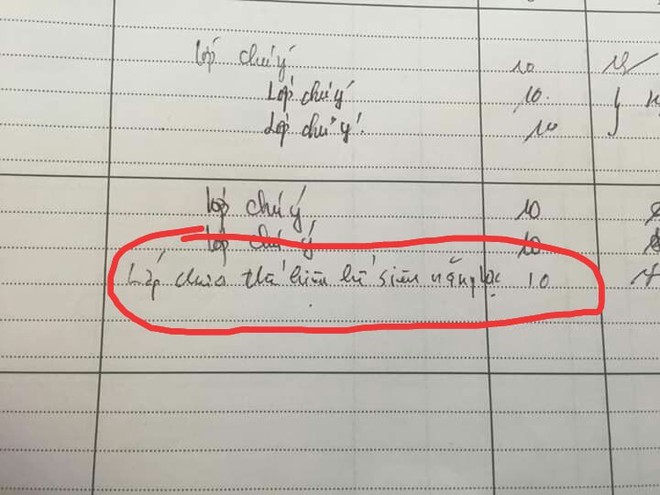 Lớp chú ý 10
Lớp chú ý 10
Lớp chú ý! 10
Lớp chú ý 10
Lớp chú ý 10
Lớp chưa thể hiện hế siêu năng lực 10